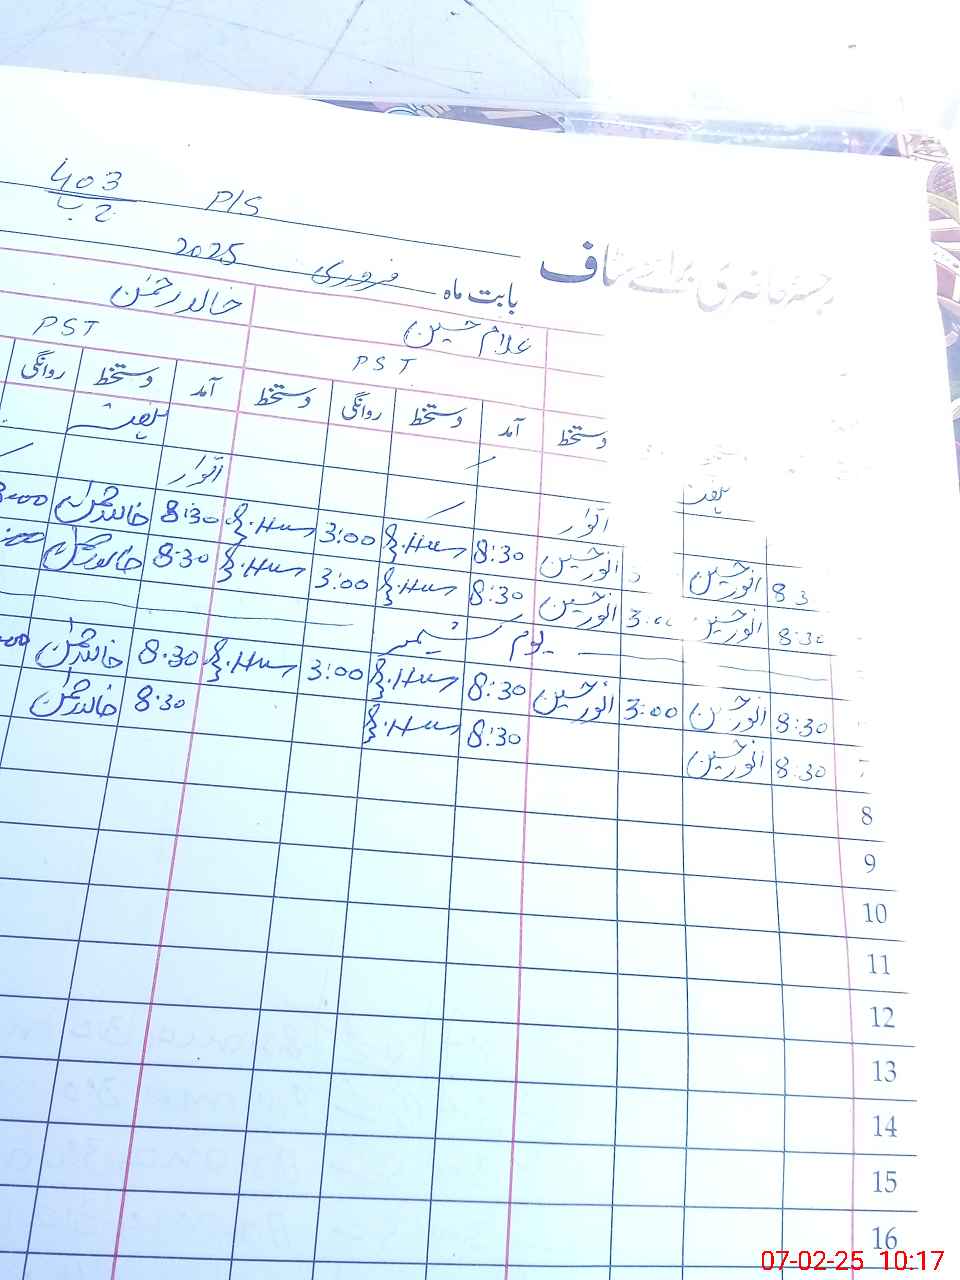 403 P/S
2 ب
رجسٹر حاضری برائے سٹاف
بابت ماہ فروری 2025
غلام حسین خالد رحمٰن
PST PST
دستخط آمد دستخط روانگی دستخط آمد دستخط روانگی
ہفتہ ہفتہ
اتوار اتوار
8:3 انور حسین انور حسین 8:30 G.Hus 3:00 G.Hus 8:30 خالد رحمٰن
8:30 انور حسین 3:00 انور حسین 8:30 G.Hus 3:00 G.Hus 8:30 خالد رحمٰن
یوم کشمیر
8:30 انور حسین 3:00 انور حسین 8:30 G.Hus 3:00 G.Hus 8:30 خالد رحمٰن
7 8:30 انور حسین 8:30 G.Hus 8:30 خالد رحمٰن
8
9
10
11
12
13
14
15
16
07-02-25 10:17